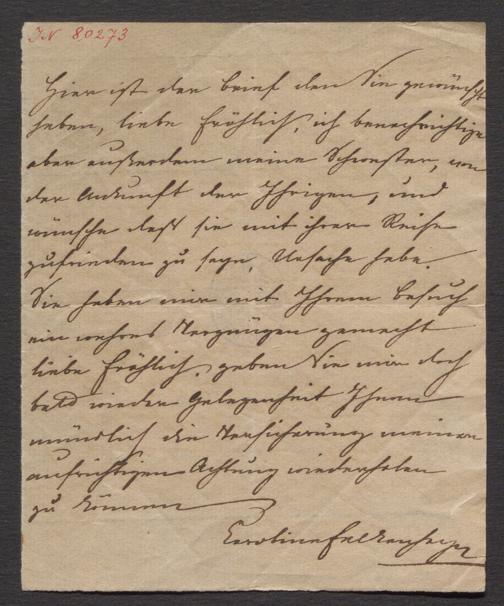 IN 80273
Hier ist der Brief den Sie gewünscht
haben, liebe Fröhlich, ich benachrichtige
aber außerdem meine Schwester, von
der Ankunft der Ihrigen, und
wünsche daß sie mit ihrer Reise
zufrieden zu seyn, Ursache habe.
Sie haben mir mit Ihrem Besuch
ein wahres Vergnügen gemacht
liebe Fröhlich, geben Sie mir doch
bald wieder Gelegenheit Ihnen
mündlich die Versicherung meiner
aufrichtigen Achtung wiederholen
zu können
Caroline